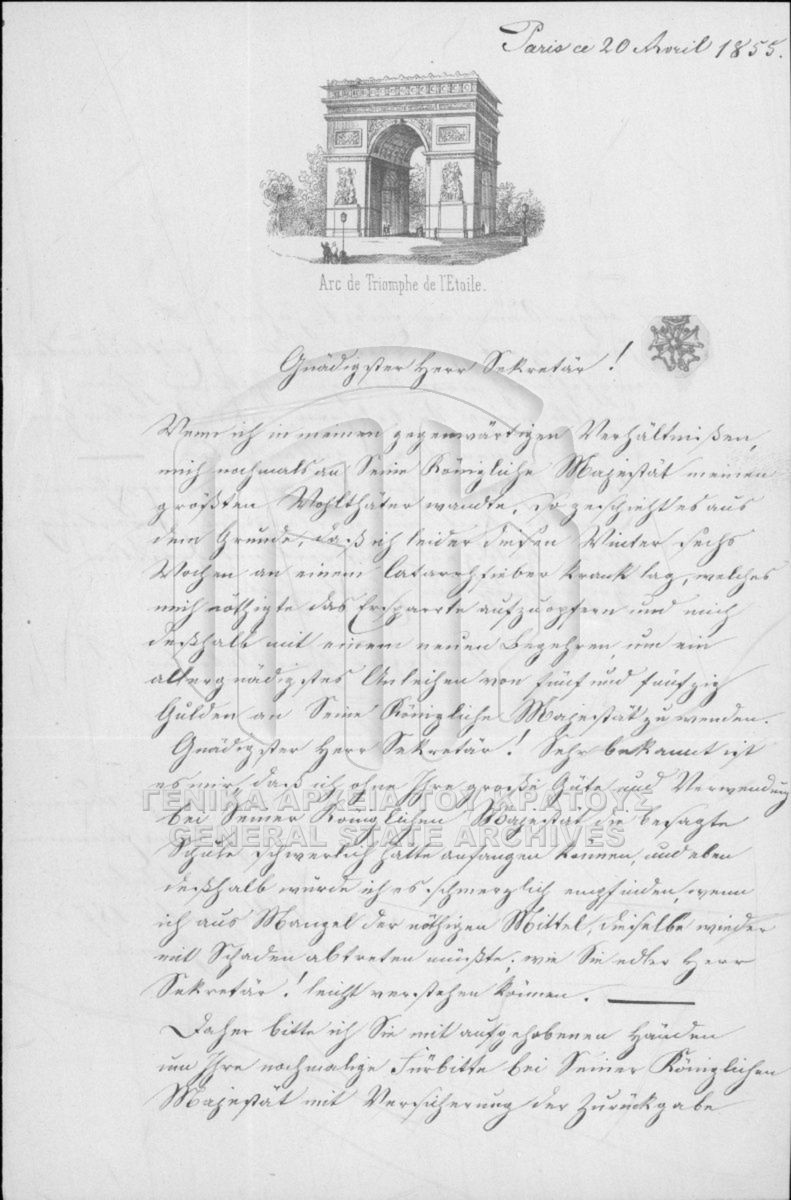 Paris ce 20 Avril 1855.
Arc de Triomphe de l'Etoile.
Gnädigster Herr Sekretär!
Wenn ich in meinen gegenwärtigen Verhältnißen,
mich nochmals an Seine Königliche Majestät meinen
größten Wohlthäter wandte, so geschieht es aus
dem Grunde, daß ich leider diesen Winter sechs
Wochen an einem Catarrhfieber krank lag, welches
mich nöthigte das Ersparrte aufzuopfern und mich
deßhalb mit einem neuen Begehren, um ein
allergnädigstes Anleihen von fünf und fünfzig
Gulden an Seine Königliche Majestät zu wenden.
Gnädigster Herr Sekretär! Sehr bekannt ist
es mir, daß ich ohne Ihre große Güte und Verwendung
bei Seiner Königlichen Majestät die besagte
Schule schwerlich hätte anfangen können, und eben
deßhalb würde ich es schmerzlich empfinden, wenn
ich aus Mangel der nöthigen Mittel, dieselbe wieder
mit Schaden abtreten müßte; wie Sie edler Herr
Sekretär! leicht verstehen können.
Daher bitte ich Sie mit aufgehobenen Händen
um Ihre nochmalige Fürbitte bei Seiner Königlichen
Majestät mit Versicherung der Zurückgabe
ΓΕΝΙΚΑ ΑΡΧΕΙΑ ΤΟΥ ΚΡΑΤΟΥΣ
GENERAL STATE ARCHIVES